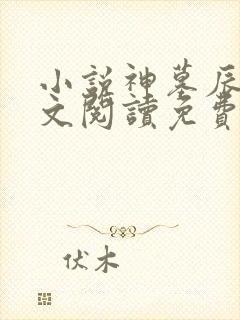 小說神墓辰
文閱讀免費
伏木